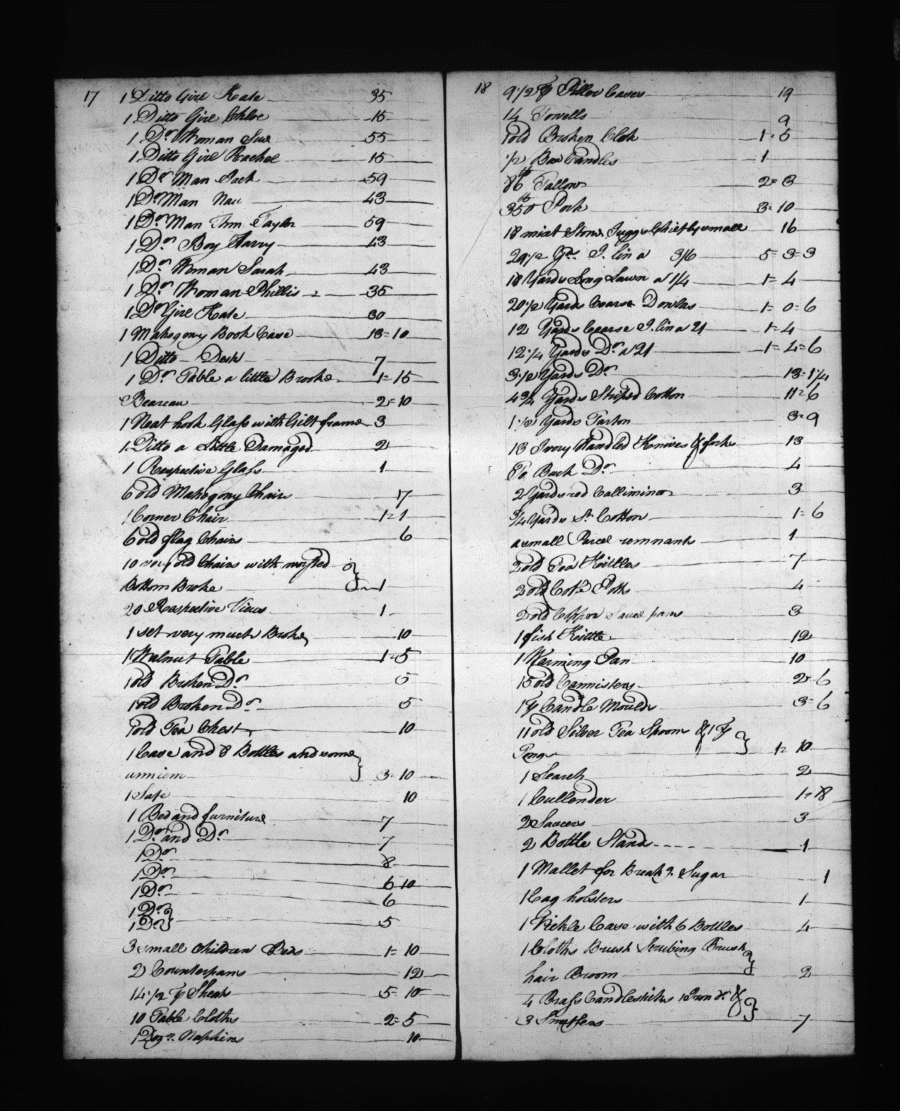 17
1 Ditto Girl Kate 35
1 Ditto Girl Chloe 15
1 Do. Woman Sue 55
1 Ditto Girl Rachel 15
1 Do. Man Jack 59
1 Do Man 43
1 Do. Man Tom Taylor 59
1 Do. Boy Harry 43
1 Do. Woman Sarah 43
1 Do. Woman Phillis 35
1 Do Girl Kate 30
1 Mahogony Book Case 18=10
1 Ditto Desk 7
1 Do. Table a little Broke 1=15
Beareau 2=10
1 Neat Glass with Gilt frame 3
1 Ditto a Little Damaged 2
1 Respective Glass 1
6 old Mahogony Chair 17
1 Corner Chair 1=1
6 old flag Chairs 6
10 very old Chairs with
Bottom Broke 1
20 Respective Views 1
1 set very much Broke 10
1 Walnut Table 1=5
1 old Broken Do. 5
1 old Broken Do. 5
1 old Tea Chest 10
1 Case and 8 Bottles and some
3=10
1 Safe 10
1 Bed and furniture 7
1 Do. and Do. 7
1 Do. 8
1 Do. 6 10
1 Do. 6
1 Do.
1 Do. 5
3 small Children Beds 1=10
2 Counterpans 12
14 1/2 pr Sheets 5=10
10 Table Cloths 2=5
1 Doz. Napkins 10
18
9 1/2 pr Pillow Cases 19
14 Towells 9
1 old Broken Clock 1=5
1/2 Box Candles 1
86 lb Tallow 2=3
350 lb Pork 3=10
18 Stone Juggs Chiefly small 16
29 1/2 Yds. I. lin a 3/6 5=3=3
18 Yards Long Lawn a 1/4 1=4
20 1/2 Yards Coarse Dowlas 1=0=6
12 Yards Coarse I. lin a 2/ 1=4
12 1/4 Yards Do. a 2/ 1=4=6
3 1/2 Yards Do. 13=1 1/4
4 3/4 Yards Striped Cotton 11=6
1 1/2 Yards Tartan 3=9
18 Ivory Handled Knives & forks 13
To Buck Do. 4
2 Yards red Calliminco 3
3/4 Yards St. Cotton 1=6
a small Parcel remnants 1
2 old Tea Kittles 7
2 old Coffe Potts 4
2 old Copper Sauce pans 3
1 fish Kittle 12
1 Warming Pan 10
15 old Cannisters 2=6
1 pr Candle Moulds 3=6
11 old Silver Tea Spoons & 1 pr
Tongs 1=10
1 Search 2
1 Cullender 1=18
2 Saucers 3
2 Bottle Stand 1
1 Mallet for Break.g Sugar 1
1 Cag lobsters 1
1 Pickle Case with 6 Bottles 4
1 Cloths Brush Scrubing Brush
hair Broom 2
4 Brass Candlesticks 1 Iron do. &
3 Snuffers 7